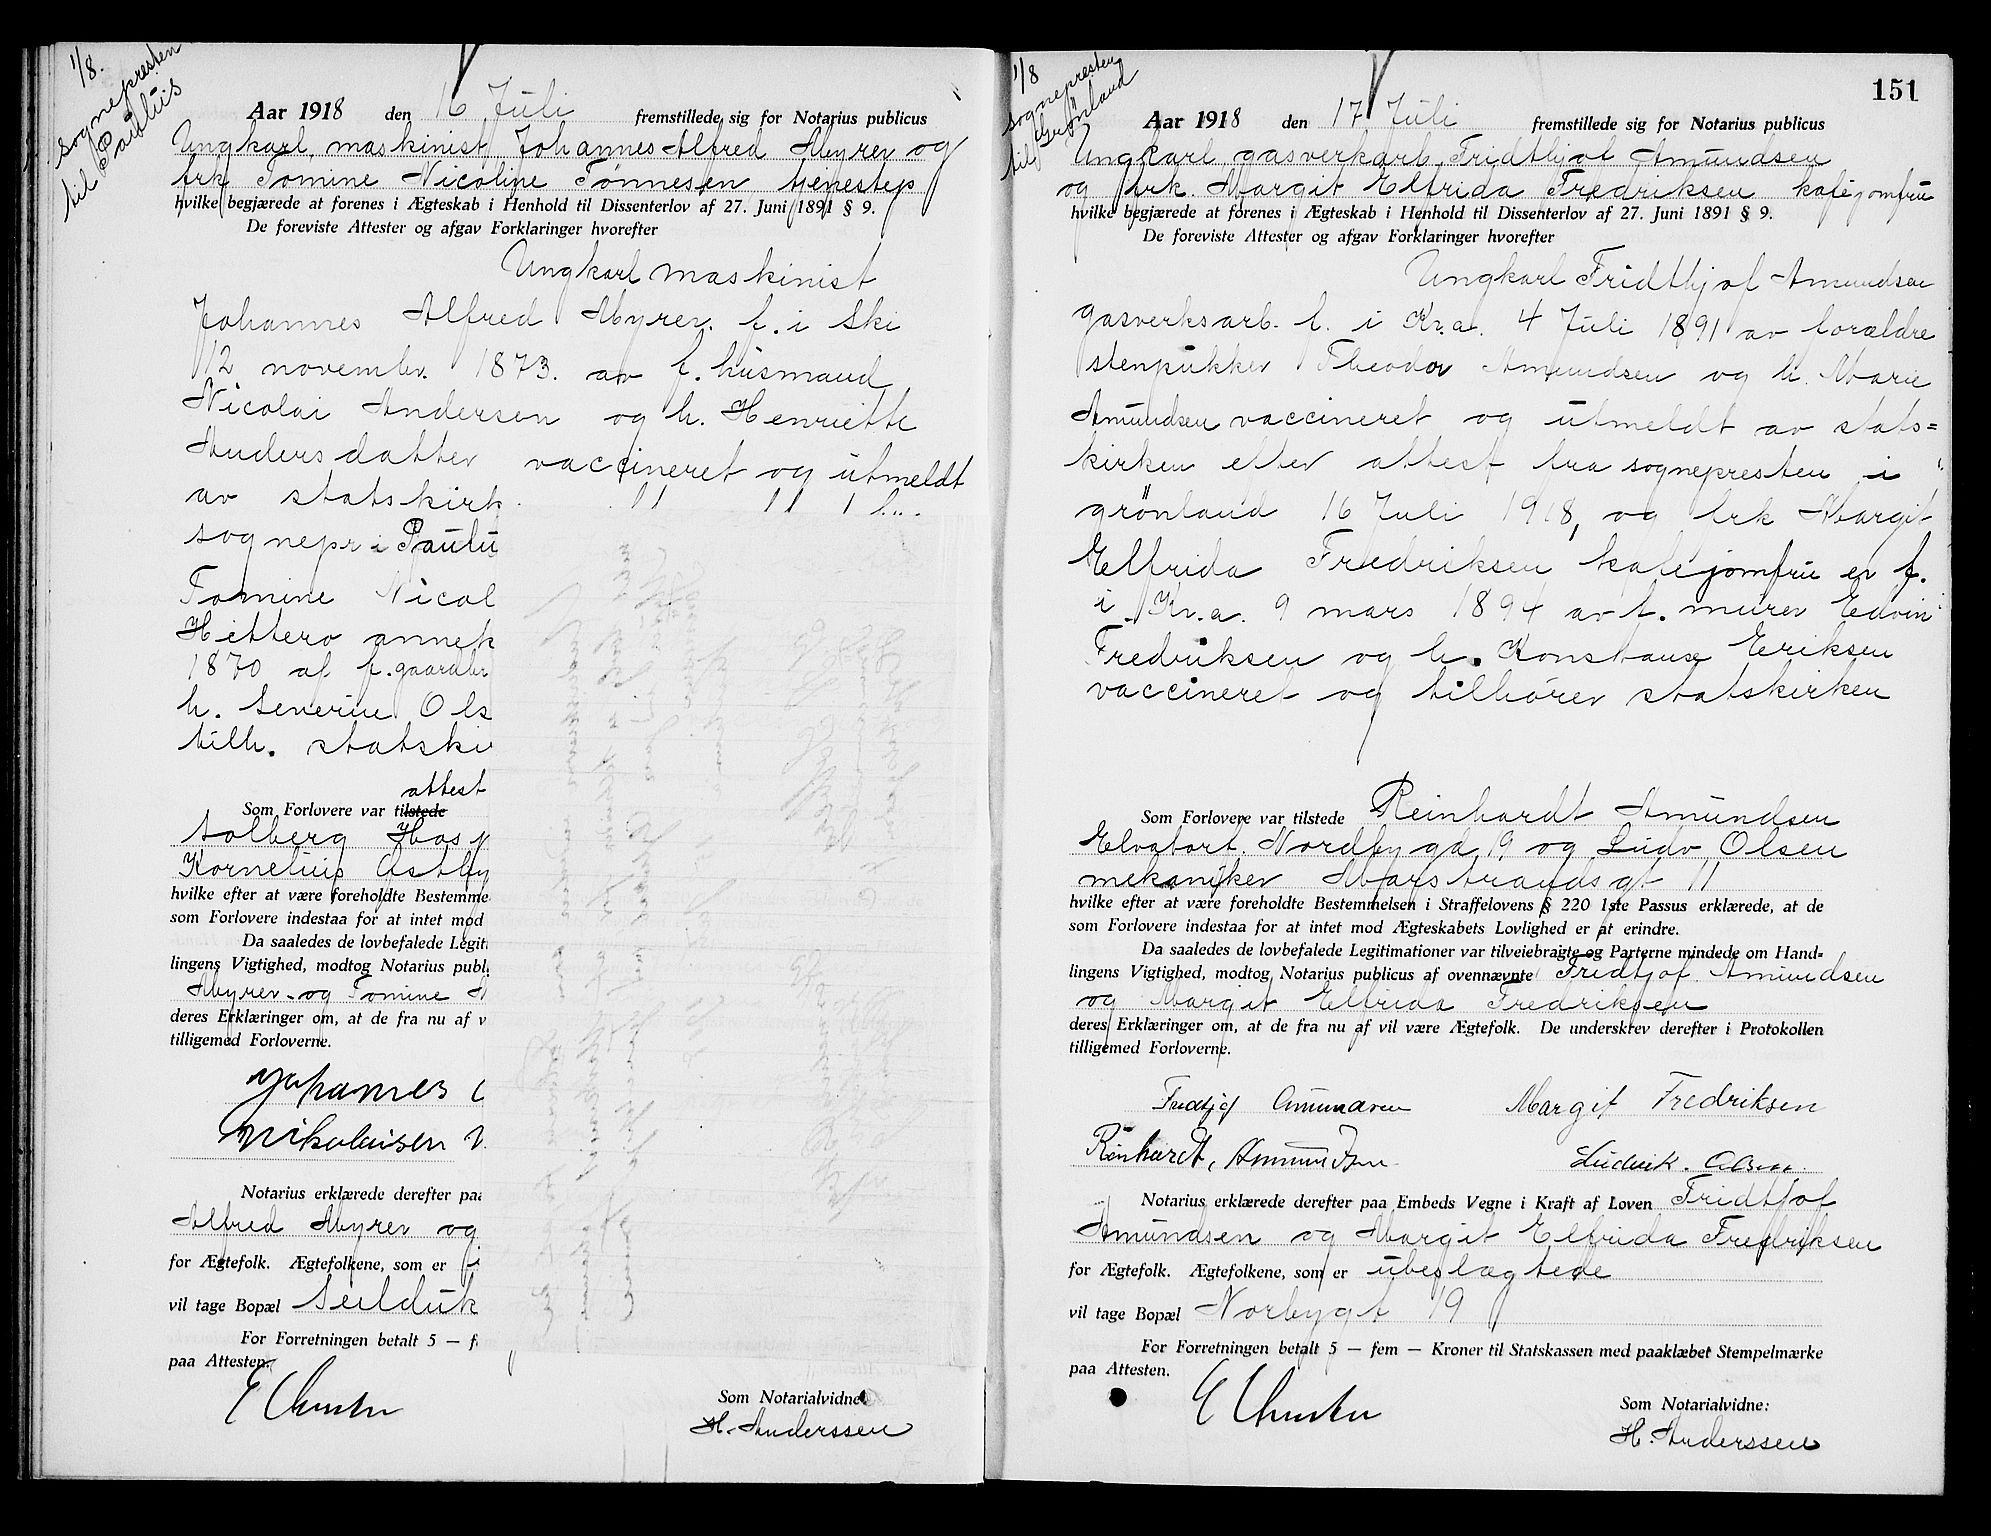 1/8.
Sognepresten
til Paulus
Aar 1918 den 16 Juli fremstillede sig for Notarius publicus
Ungkarl, maskinist Johannes Alfred Myrer og
frk Tomine Nicoline Tønnesen tjenestep
hvilke begjærede at forenes i Ægteskab i Henhold til Dissenterlov af 27. Juni 1891 § 9.
De foreviste Attester og afgav Forklaringer hvorefter
Ungkarl maskinist
Johannes Alfred Myrer f. i Ski
12 novembr. 1873. av f. husmand
Nicolai Andersen og h. Henriette
Andersdatter vaccineret og utmeldt
av statskirk
sognepr i Paulu
Tomine Nicol
Hitterø annek
1870 af f. gaardbr
h. Severine Ols
tilh. statski
attest
Som Forlovere var tilstede
Solberg
Kornelius Østby
hvilke efter at være foreholdte Bestemme
som Forlovere indestaa for at intet mod
Da saaledes de lovbefalede Legit
lingens Vigtighed, modtog Notarius publ
Myrer og Tomine N
deres Erklæringer om, at de fra nu af v
tilligemed Forloverne.
Johannes
Nikolaisen
Notarius erklærede derefter paa
Alfred Myrer og
for Ægtefolk. Ægtefolkene, som er
vil tage Bopæl Seilduk
For Forretningen betalt 5 — f
paa Attesten.
E Christie
Som Notarialvidne
H. Anderssen
151
1/8
Sognepresten
til Grönland
Aar 1918 den 17 Juli fremstillede sig for Notarius publicus
Ungkarl gasverkarb. Fridthjof Amundsen
og frk. Margit Elfrida Fredriksen kafejomfru
hvilke begjærede at forenes i Ægteskab i Henhold til Dissenterlov af 27. Juni 1891 § 9.
De foreviste Attester og afgav Forklaringer hvorefter
Ungkarl Fridthjof Amundsen
gasverksarb. f. i Kr.a. 4 Juli 1891 av forældre
stenpukker Theodor Amundsen og h. Marie
Amundsen vaccineret og utmeldt av stats=
kirken efter attest fra sognepresten i
grönland 16 Juli 1918, og frk Margit
Elfrida Fredriksen kafejomfru er f.
i Kr.a. 9 mars 1894 av f. murer Edvin
Fredriksen og h. Konstanse Eriksen
vaccineret og tilhører statskirken
Som Forlovere var tilstede Reinhardt Amundsen
Elvatorf. Nordbygd 19 og Ludv Olsen
mekaniker Marstrandsgt 11
hvilke efter at være foreholdte Bestemmelsen i Straffelovens § 220 1ste Passus erklærede, at de
som Forlovere indestaa for at intet mod Ægteskabets Lovlighed er at erindre.
Da saaledes de lovbefalede Legitimationer var tilveiebragte og Parterne mindede om Hand=
lingens Vigtighed, modtog Notarius publicus af ovennævnte Fridtjof Amundsen
og Margit Elfrida Fredriksen
deres Erklæringer om, at de fra nu af vil være Ægtefolk. De underskrev derefter i Protokollen
tilligemed Forloverne.
Fridtjof Amundsen Margit Fredriksen
Reinhardt, Amundsen Ludvik. Olsen.
Notarius erklærede derefter paa Embeds Vegne i Kraft af Loven Fridtjof
Amundsen og Margit Elfrida Fredriksen
for Ægtefolk. Ægtefolkene, som er ubeslægtede
vil tage Bopæl Norbygt 19
For Forretningen betalt 5 — fem — Kroner til Statskassen med paaklæbet Stempelmærke
paa Attesten.
E Christie
Som Notarialvidne:
H. Anderssen